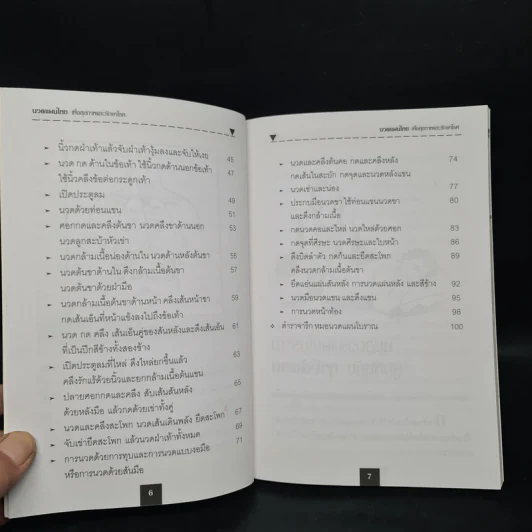 นวดแผนไทย เพื่อสุขภาพและรักษาโรค
➢ นิ้วกดฝ่าเท้าแล้วจับฝ่าเท้างุ้มลงและจับให้เงย 45
➢ นวด กด ด้านในข้อเท้า ใช้นิ้วกดด้านนอกข้อเท้า 47
ใช้นิ้วคลึงข้อต่อกระดูกเท้า
➢ เปิดประตูลม 49
➢ นวดด้วยท่อนแขน 51
➢ ศอกกดและคลึงต้นขา นวดคลึงขาด้านนอก 53
นวดลูกสะบ้าหัวเข่า
➢ นวดกล้ามเนื้อน่องด้านใน นวดด้านหลังต้นขา 55
➢ นวดต้นขาด้านใน ดึงกล้ามเนื้อต้นขา 57
นวดต้นขาด้วยฝ่ามือ
➢ นวดกล้ามเนื้อต้นขาด้านหน้า คลึงเส้นหน้าขา 59
กดเส้นเอ็นที่หน้าแข้งลงไปถึงข้อเท้า
➢ นวด กด คลึง เส้นเอ็นคู่ของสันหลังและดึงเส้นเอ็น 61
ที่เป็นปีกสีข้างทั้งสองข้าง
➢ เปิดประตูลมที่ไหล่ ดึงไหล่ยกขึ้นแล้ว 63
คลึงรักแร้ด้วยนิ้วและยกกล้ามเนื้อต้นแขน
➢ ปลายศอกกดและคลึง สับเส้นสันหลัง 65
ด้วยหลังมือ แล้วกดด้วยเข่าทั้งคู่
➢ นวดและคลึงสะโพก นวดเส้นเดินพลัง ยืดสะโพก 67
➢ จับเข่ายืดสะโพก แล้วนวดฝ่าเท้าทั้งหมด 69
➢ การนวดด้วยการทุบและการนวดแบบงอมือ 71
หรือการนวดด้วยสันมือ
6
นวดแผนไทย เพื่อสุขภาพและรักษาโรค
➢ นวดและคลึงต้นคอ กดและคลึงหลัง 74
กดเส้นในสะบัก กดจุดและนวดหลังแขน
➢ นวดเข่าและน่อง 77
➢ ประกบมือนวดขา ใช้ท่อนแขนนวดขา 80
และดึงกล้ามเนื้อ
➢ กดนวดคอและไหล่ นวดไหล่ด้วยศอก 83
➢ กดจุดที่ศีรษะ นวดศีรษะและใบหน้า 86
➢ ดึงบิดลำตัว กดก้นและยืดสะโพก 89
คลึงนวดกล้ามเนื้อต้นขา
➢ ยืดแอ่นแผ่นสันหลัง การนวดแผ่นหลัง และสีข้าง 92
➢ นวดมือนวดแขน และดึงแขน 95
➢ การนวดหน้าท้อง 98
❖ ตำราจารึก หมอนวดแผนโบราณ 100
7